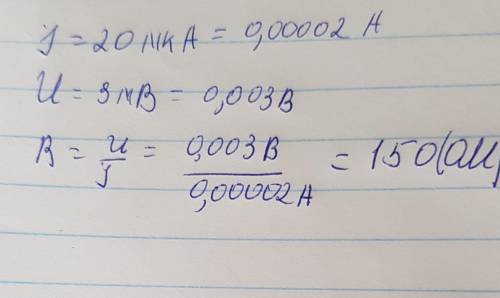 J = 20 мкА = 0,00002 А
U = 3мВ = 0,003В
R = U/J = 0,003В/0,00002А = 150(Ом)